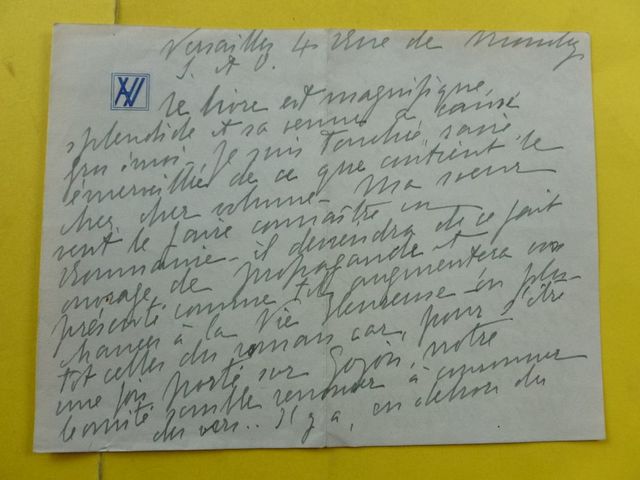 Versailles 4 rue de
S. et O.
AV
Ce livre est magnifique,
splendide et sa venue a causé
émoi. Je suis touché, ravie,
émerveillée de ce que contient le
cher, cher volume. Ma soeur
veut le faire connaître en
Roumanie. il deviendra de ce fait
ouvrage de propagande et
présenté comme tel augmentera vos
chances à la Vie Heureuse en plu-
tot celles du roman car, pour s'être
une fois porté sur Gojon, notre
comité semble renoncer à couronner
des vers.. Il y a, en dehors du